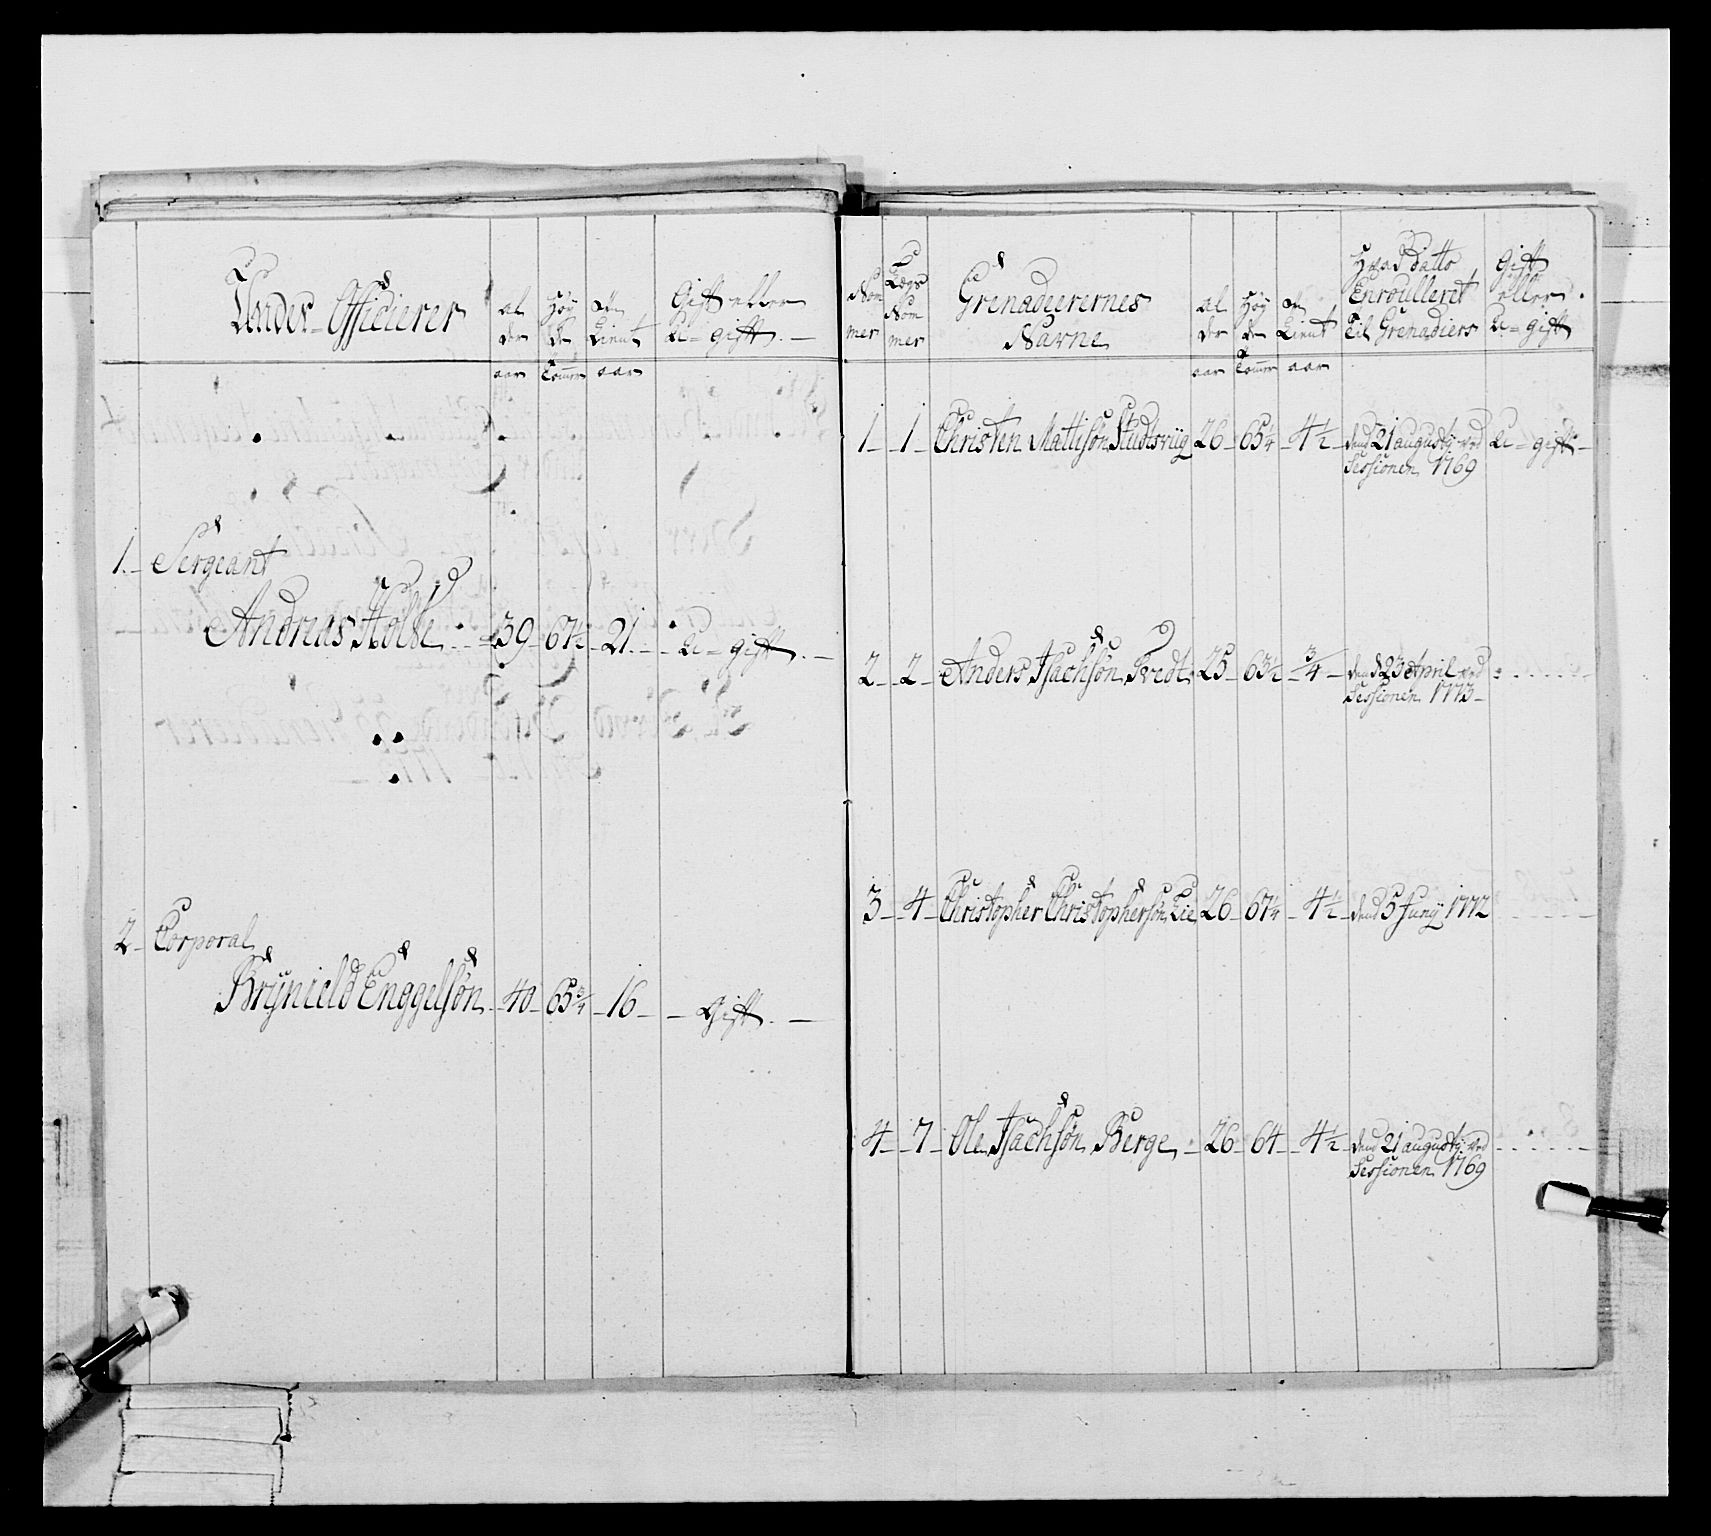 Under-Officierer
al
der
aar
Høy
de
Tommer
Tient
aar
Gift eller
U=gift.
1. Sergeant
Andreas Holbe. 39 67½ 21. U=gift.
2 Corporal
Brynield Enggelsøn 40 65¾ 16 Gift.
Nom
mer
Lægs
Nom
mer
Grenadeerernes
Navne
al
der
aar
Høy
de
Tommer
Tient
aar
Hvad datto
Enroulleret
Til Grenadiers
Gift
eller
U=gift
1 1 Christen Mattisøn 26 65¼ 4½ dend 21 augusty ved U=gift
Sessionen 1769
2 2 Anders Isachsøn Tvedt 25 63½ ¾ dend 23 April ved
Sessionen 1773
3 4 Christopher Christophersøn Lie 26 67¼ 4½ dend 5 Juny 1772
4 7 Ole Isachsøn Berge 26 64 4½ dend 21 augusty ved
Sessionen 1769